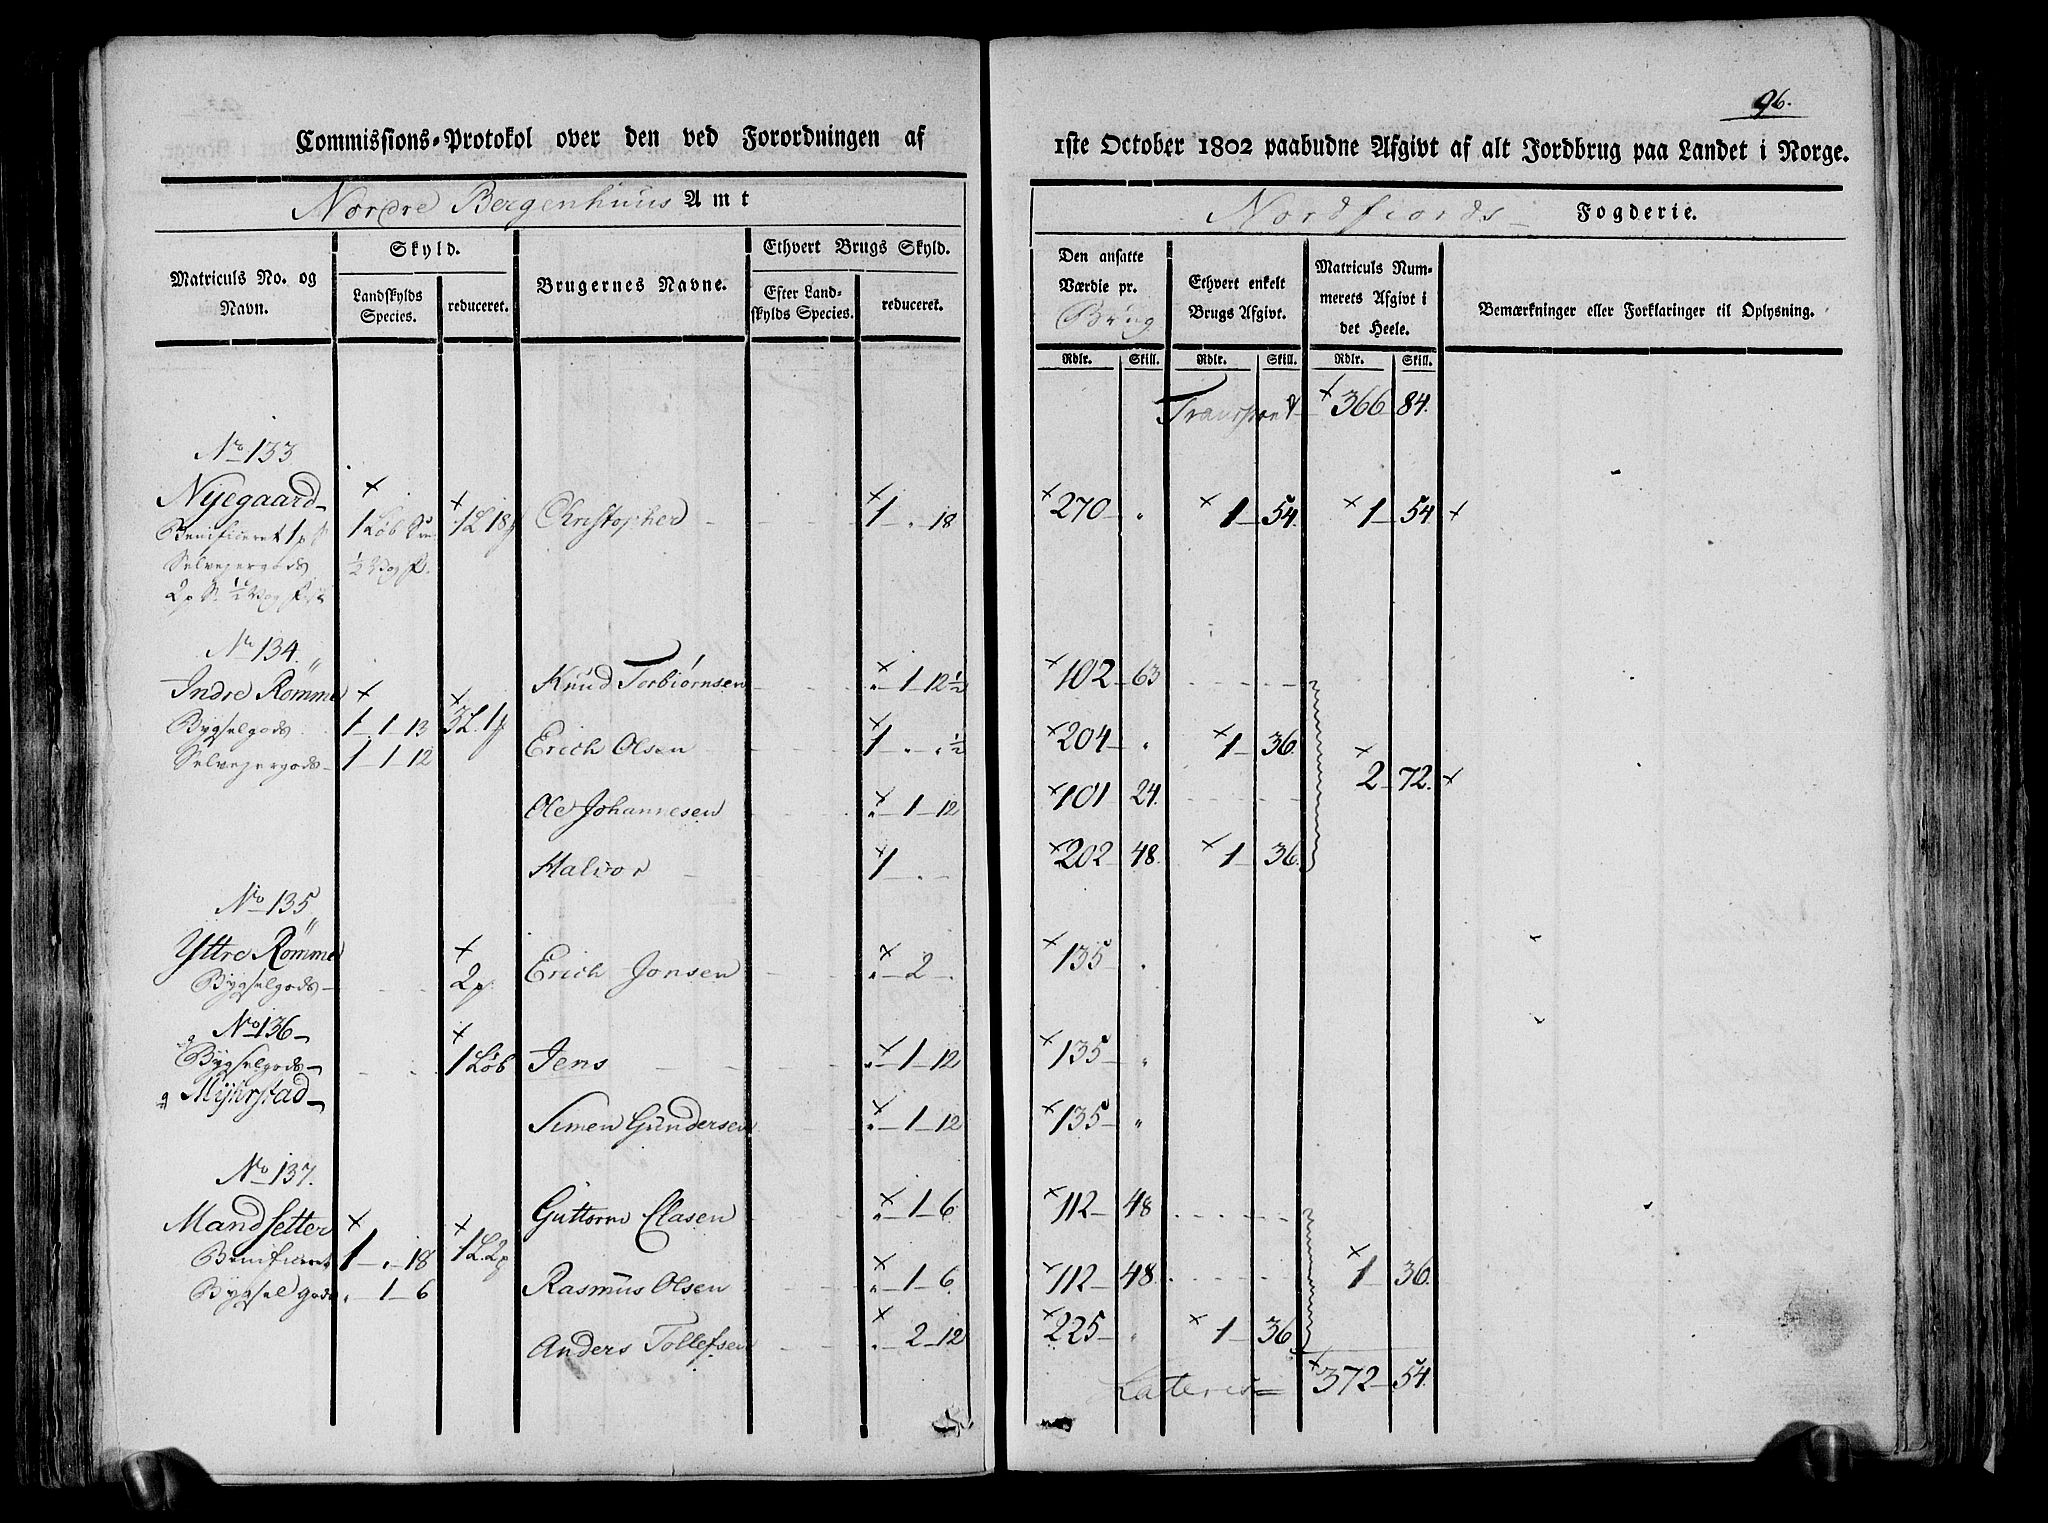 96.
Commissions-Protokol over den ved Forordningen af 1ste October 1802 paabudne Afgivt af alt Jordbrug paa Landet i Norge.
Nordre Bergenhuus Amt
Nordfiords Fogderie.
Matriculs No. og Navn.
Skyld.
Landskylds Species.
reduceret.
Brugernes Navne.
Ethvert Brugs Skyld.
Efter Landskylds Species.
reduceret.
Den ansatte Værdie pr. Brug
Ethvert enkelt Brugs Afgivt.
Matriculs Nummerets Afgivt i det Heele.
Bemærkninger eller Forklaringer til Oplysning.
Rdlr. Skill. Rdlr. Skill. Rdlr. Skill.
Transport 366 84.
No 133
Nyegaard 1 Løb 1 L 18 Christopher 1 " 18 270 " 1 54. 1 54
Benificeret 1 p S
Selveyergods ½ Vog
2 p S. ½ Vog
No 134.
Indre Römme
Knud Torbiörnsen " 1 12½ 102 63
Bygselgods 1 1 13 3 L. 1
Selveyergods 1 1 12
Erich Olsen 1 " " ½ 204 " 1 36.
2 72.
Ole Johannesen " 1 12 101 24.
Halvor 1 " 202 48. 1 36
No 135
Yttre Römme
Bygselgods 2 p Erich Jonsen " 2 " 135 "
No 136
Bygselgods 1 Løb Jens " 1 12 135 "
Myhrstad
Simen Gundersen " 1 12 135 "
No 137.
Mandsetter Guttorm Clasen " 1 6 112 48
Benificeret 1 " 18 1 L. 2 p
Bygselgods " 1 6 Rasmus Olsen " 1 6 112 48 1 36
Anders Tollefsen " 2 12 225 " 1 36
Lateris 372 54.